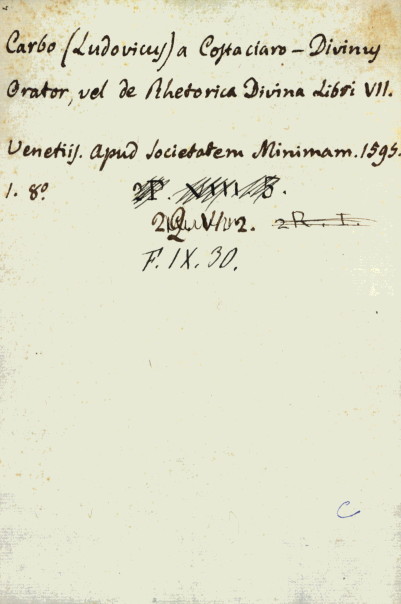 Carbo (Ludovicus) a Costaciaro - Divinus
Orator, vel de Rhetorica Divina Libri VII.
Venetiis. Apud Societatem Minimam. 1595.
1. 8º
2 R. I.
F. IX. 30.
C